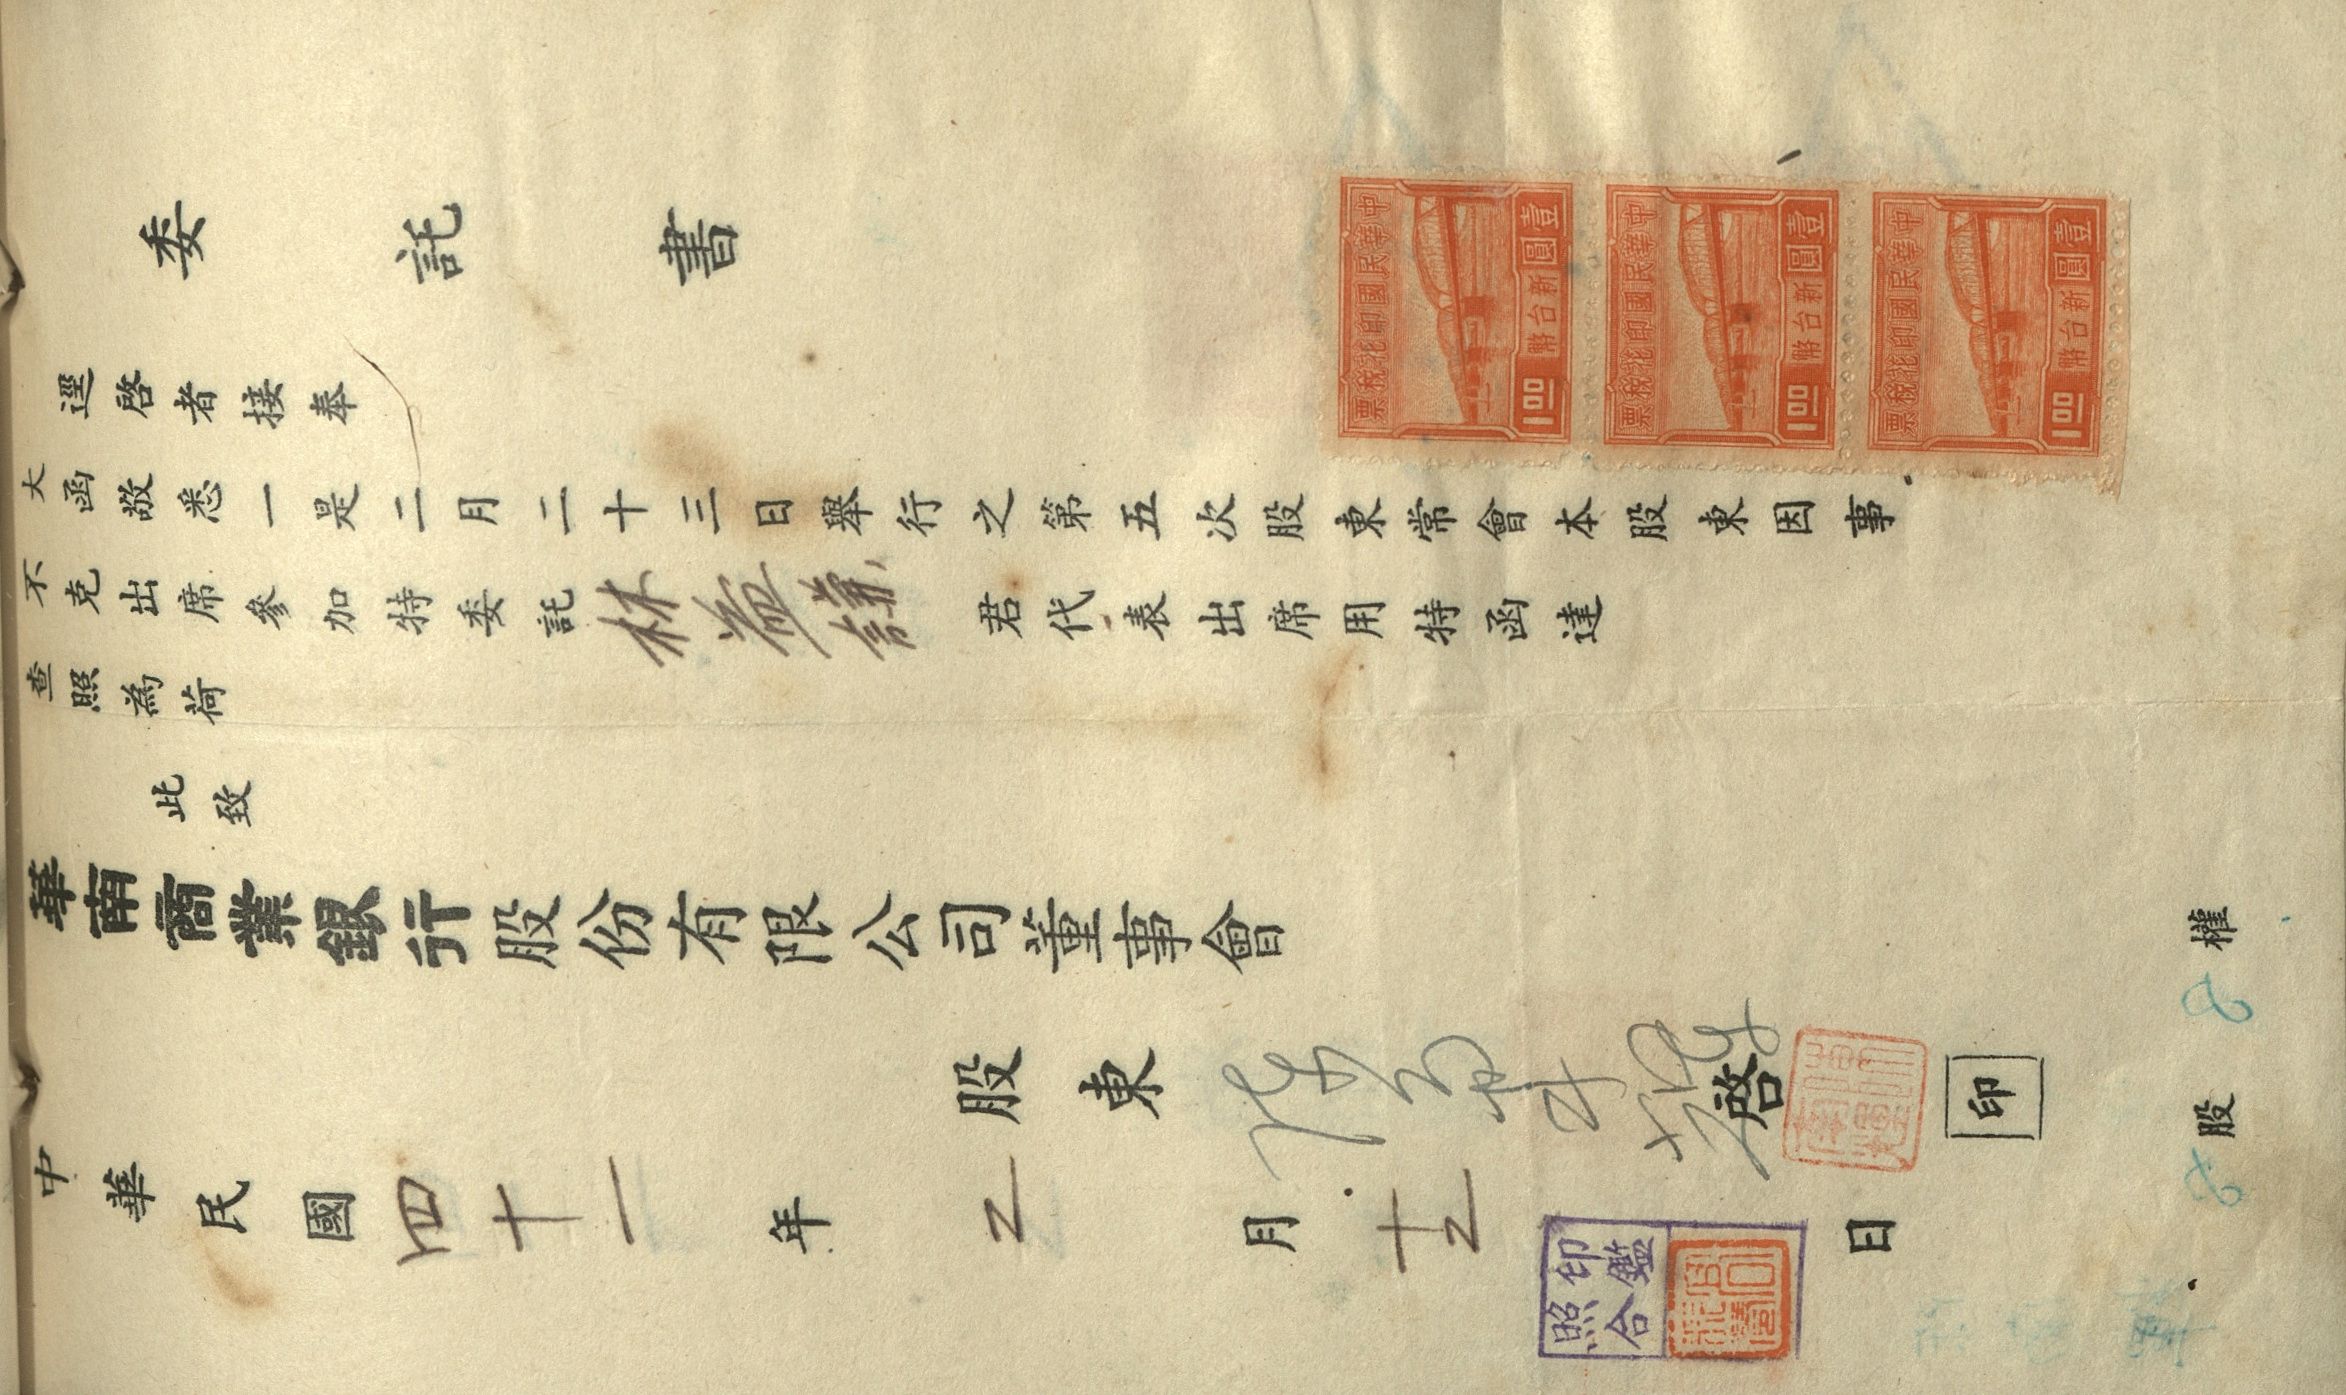 委託書
逕啓者接奉
大函敬悉一是二月二十三日舉行之第五次股東常會本股東因事
不克出席參加特委託林益謙君代表出席用特函達
查照為荷
此致
華南商業銀行股份有限公司董事會
股東 啓 印
中華民國四十一年二月十二日
印鑑
照合
權
股
中華民國印花稅票
壹圓
新台幣
1.00
中華民國印花稅票
壹圓
新台幣
1.00
中華民國印花稅票
壹圓
新台幣
1.00